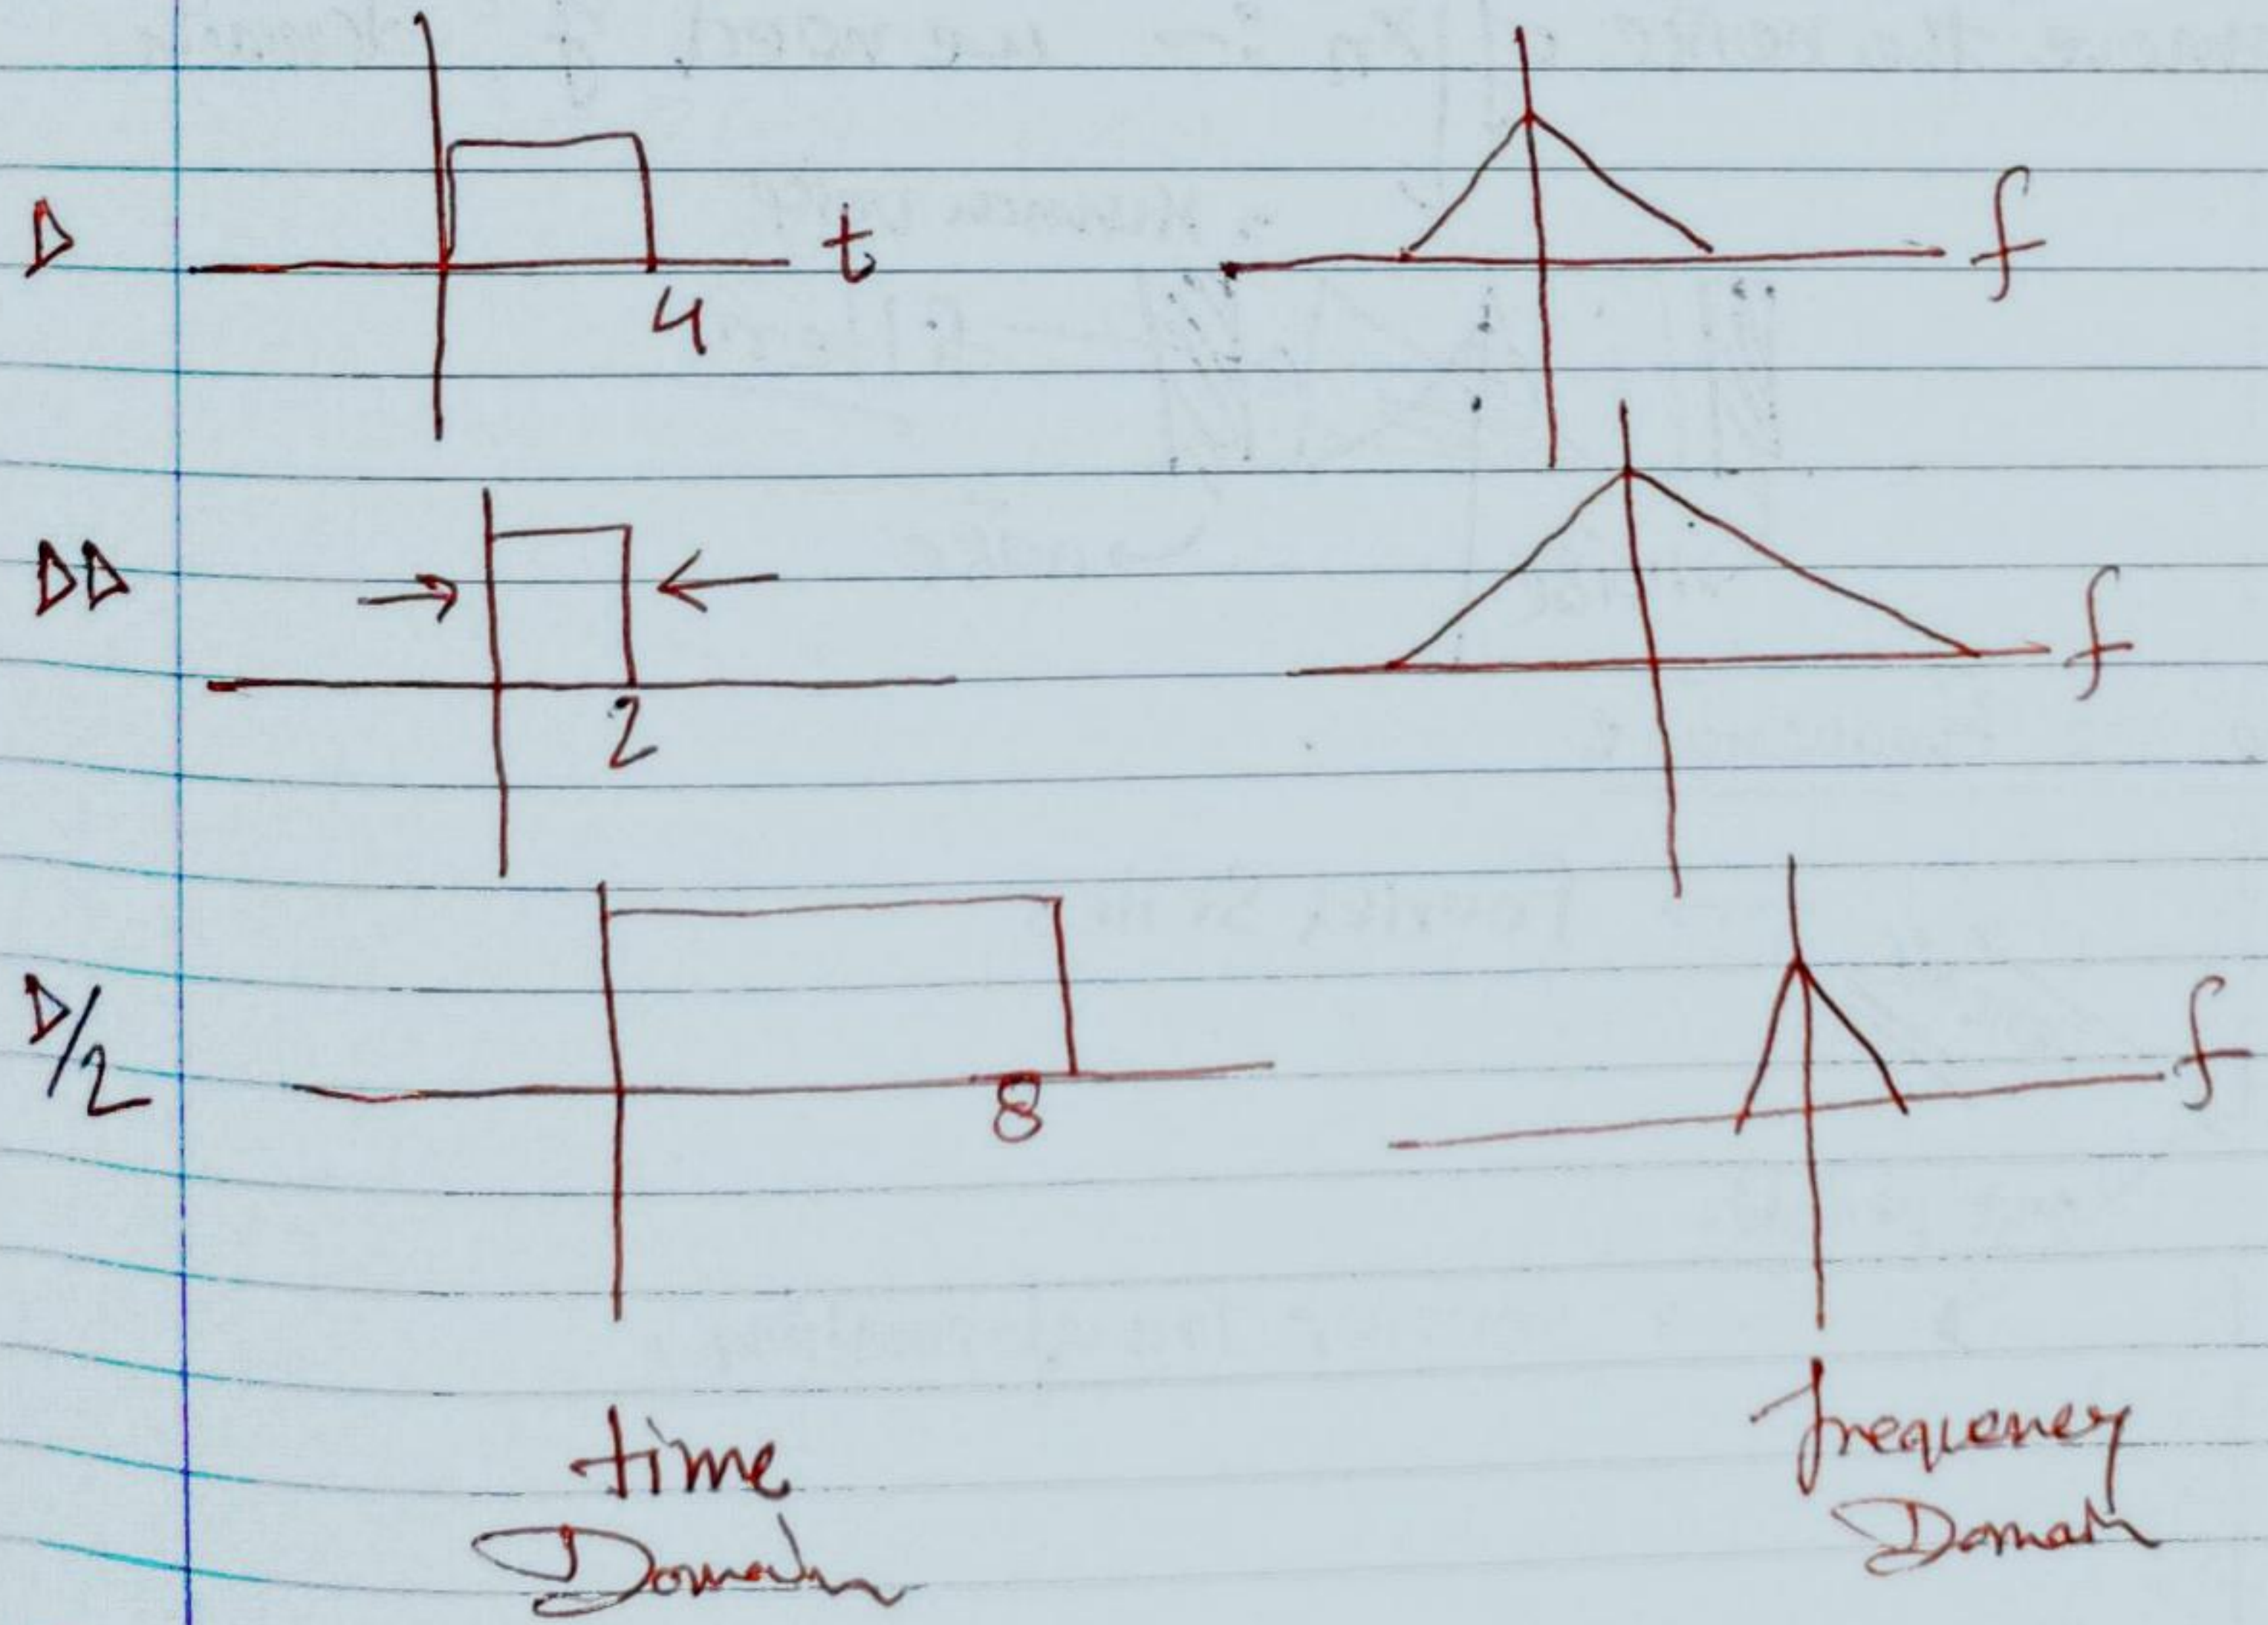 D
t
4
f
DD
2
f
D/2
8
f
time
Domain
frequency
Domain